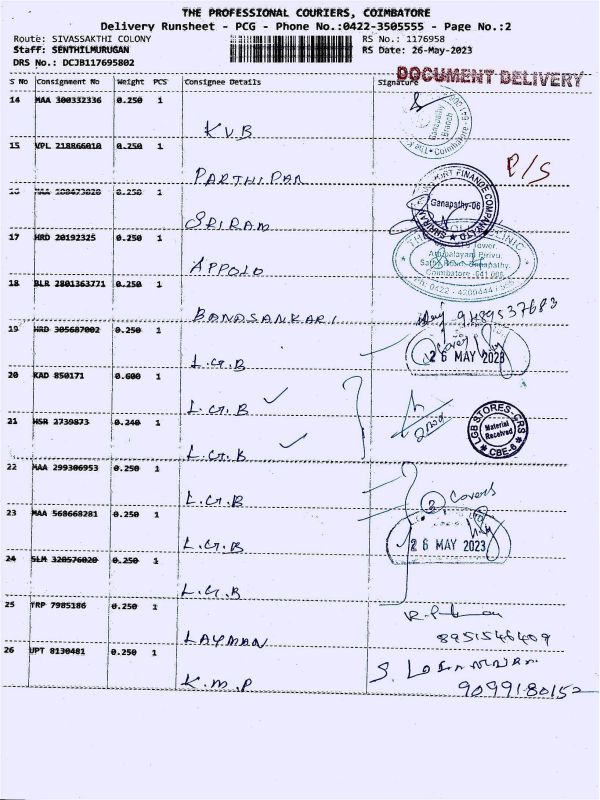 THE PROFESSIONAL COURIERS, COIMBATORE
Delivery Runsheet - PCG - Phone No.:0422-3505555 - Page No.:2
Route: SIVASSAKTHI COLONY RS No.: 1176958
Staff: SENTHILMURUGAN RS Date: 26-May-2023
DRS No.: DCJB117695802
DOCUMENT DELIVERY
S No Consignment No Weight PCS Consignee Details Signature
14 MAA 300332336 0.250 1
KVB
Ganapathy Branch
15 VPL 218866010 0.250 1
PARTHIPAN
P/S
16 0.250 1
SRIRAM
Ganapathy-06
17 HRD 20192325 0.250 1
APPOLO
Coimbatore -641 006
18 BLR 2801363771 0.250 1
BANASANKARI
9489537683
19 HRD 305687002 0.250 1
L.G.B
26 MAY 2023
20 KAD 850171 0.600 1
L.G.B
21 HSR 2739873 0.240 1
L.G.B
LGB STORES-CRS
Material
Received
CBE-6
22 MAA 299306953 0.250 1
L.G.B
3 Covers
23 MAA 568668281 0.250 1
L.G.B
26 MAY 2023
24 SLM 320576020 0.250 1
L.G.B
25 TRP 7985186 0.250 1
LAYMAN
8951546409
26 UPT 8130481 0.250 1
K.M.P
9099180152